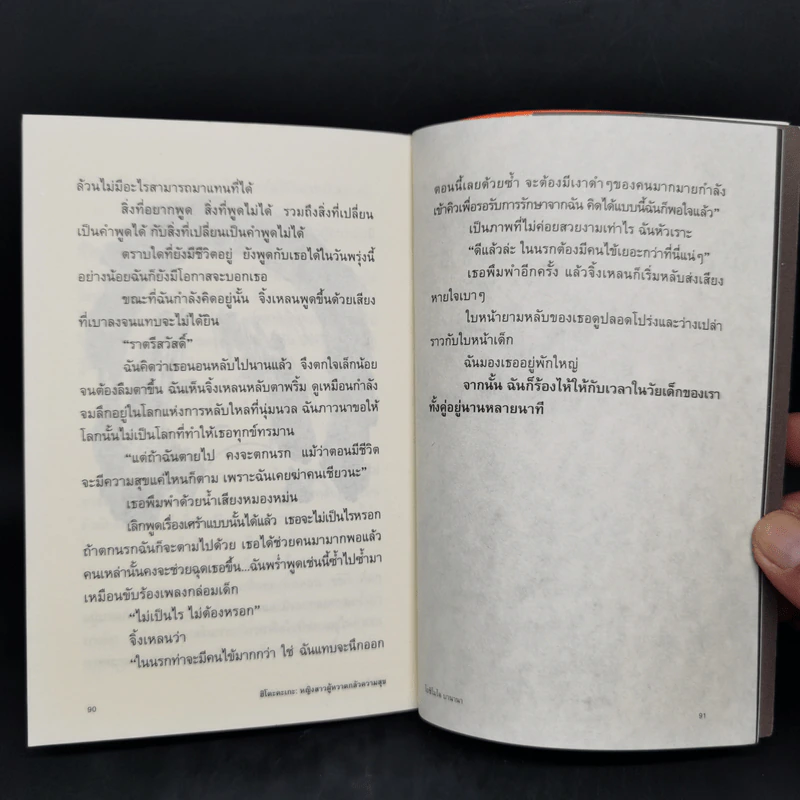 ล้วนไม่มีอะไรสามารถมาแทนที่ได้
สิ่งที่อยากพูด สิ่งที่พูดไม่ได้ รวมถึงสิ่งที่เปลี่ยน
เป็นคำพูดได้ กับสิ่งที่เปลี่ยนเป็นคำพูดไม่ได้
ตราบใดที่ยังมีชีวิตอยู่ ยังพูดกับเธอได้ในวันพรุ่งนี้
อย่างน้อยฉันก็ยังมีโอกาสจะบอกเธอ
ขณะที่ฉันกำลังคิดอยู่นั้น จิ้งเหลนพูดขึ้นด้วยเสียง
ที่เบาลงจนแทบจะไม่ได้ยิน
“ราตรีสวัสดิ์”
ฉันคิดว่าเธอนอนหลับไปนานแล้ว จึงตกใจเล็กน้อย
จนต้องลืมตาขึ้น ฉันเห็นจิ้งเหลนหลับตาพริ้ม ดูเหมือนกำลัง
จมลึกอยู่ในโลกแห่งการหลับใหลที่นุ่มนวล ฉันภาวนาขอให้
โลกนั้นไม่เป็นโลกที่ทำให้เธอทุกข์ทรมาน
“แต่ถ้าฉันตายไป คงจะตกนรก แม้ว่าตอนมีชีวิต
จะมีความสุขแค่ไหนก็ตาม เพราะฉันเคยฆ่าคนเชียวนะ”
เธอพึมพำด้วยน้ำเสียงหมองหม่น
เลิกพูดเรื่องเศร้าแบบนั้นได้แล้ว เธอจะไม่เป็นไรหรอก
ถ้าตกนรกฉันก็จะตามไปด้วย เธอได้ช่วยคนมามากพอแล้ว
คนเหล่านั้นคงจะช่วยฉุดเธอขึ้น...ฉันพร่ำพูดเช่นนี้ซ้ำไปซ้ำมา
เหมือนขับร้องเพลงกล่อมเด็ก
“ไม่เป็นไร ไม่ต้องหรอก”
จิ้งเหลนว่า
“ในนรกท่าจะมีคนไข้มากกว่า ใช่ ฉันแทบจะนึกออก
ฮิโตะคะเกะ: หญิงสาวผู้หวาดกลัวความสุข
90
ตอนนี้เลยด้วยซ้ำ จะต้องมีเงาดำๆของคนมากมายกำลัง
เข้าคิวเพื่อรอรับการรักษาจากฉัน คิดได้แบบนี้ฉันก็พอใจแล้ว”
เป็นภาพที่ไม่ค่อยสวยงามเท่าไร ฉันหัวเราะ
“ดีแล้วล่ะ ในนรกต้องมีคนไข้เยอะกว่าที่นี่แน่ๆ”
เธอพึมพำอีกครั้ง แล้วจิ้งเหลนก็เริ่มหลับส่งเสียง
หายใจเบาๆ
ใบหน้ายามหลับของเธอดูปลอดโปร่งและว่างเปล่า
ราวกับใบหน้าเด็ก
ฉันมองเธออยู่พักใหญ่
จากนั้น ฉันก็ร้องไห้ให้กับเวลาในวัยเด็กของเรา
ทั้งคู่อยู่นานหลายนาที
บานานา
91